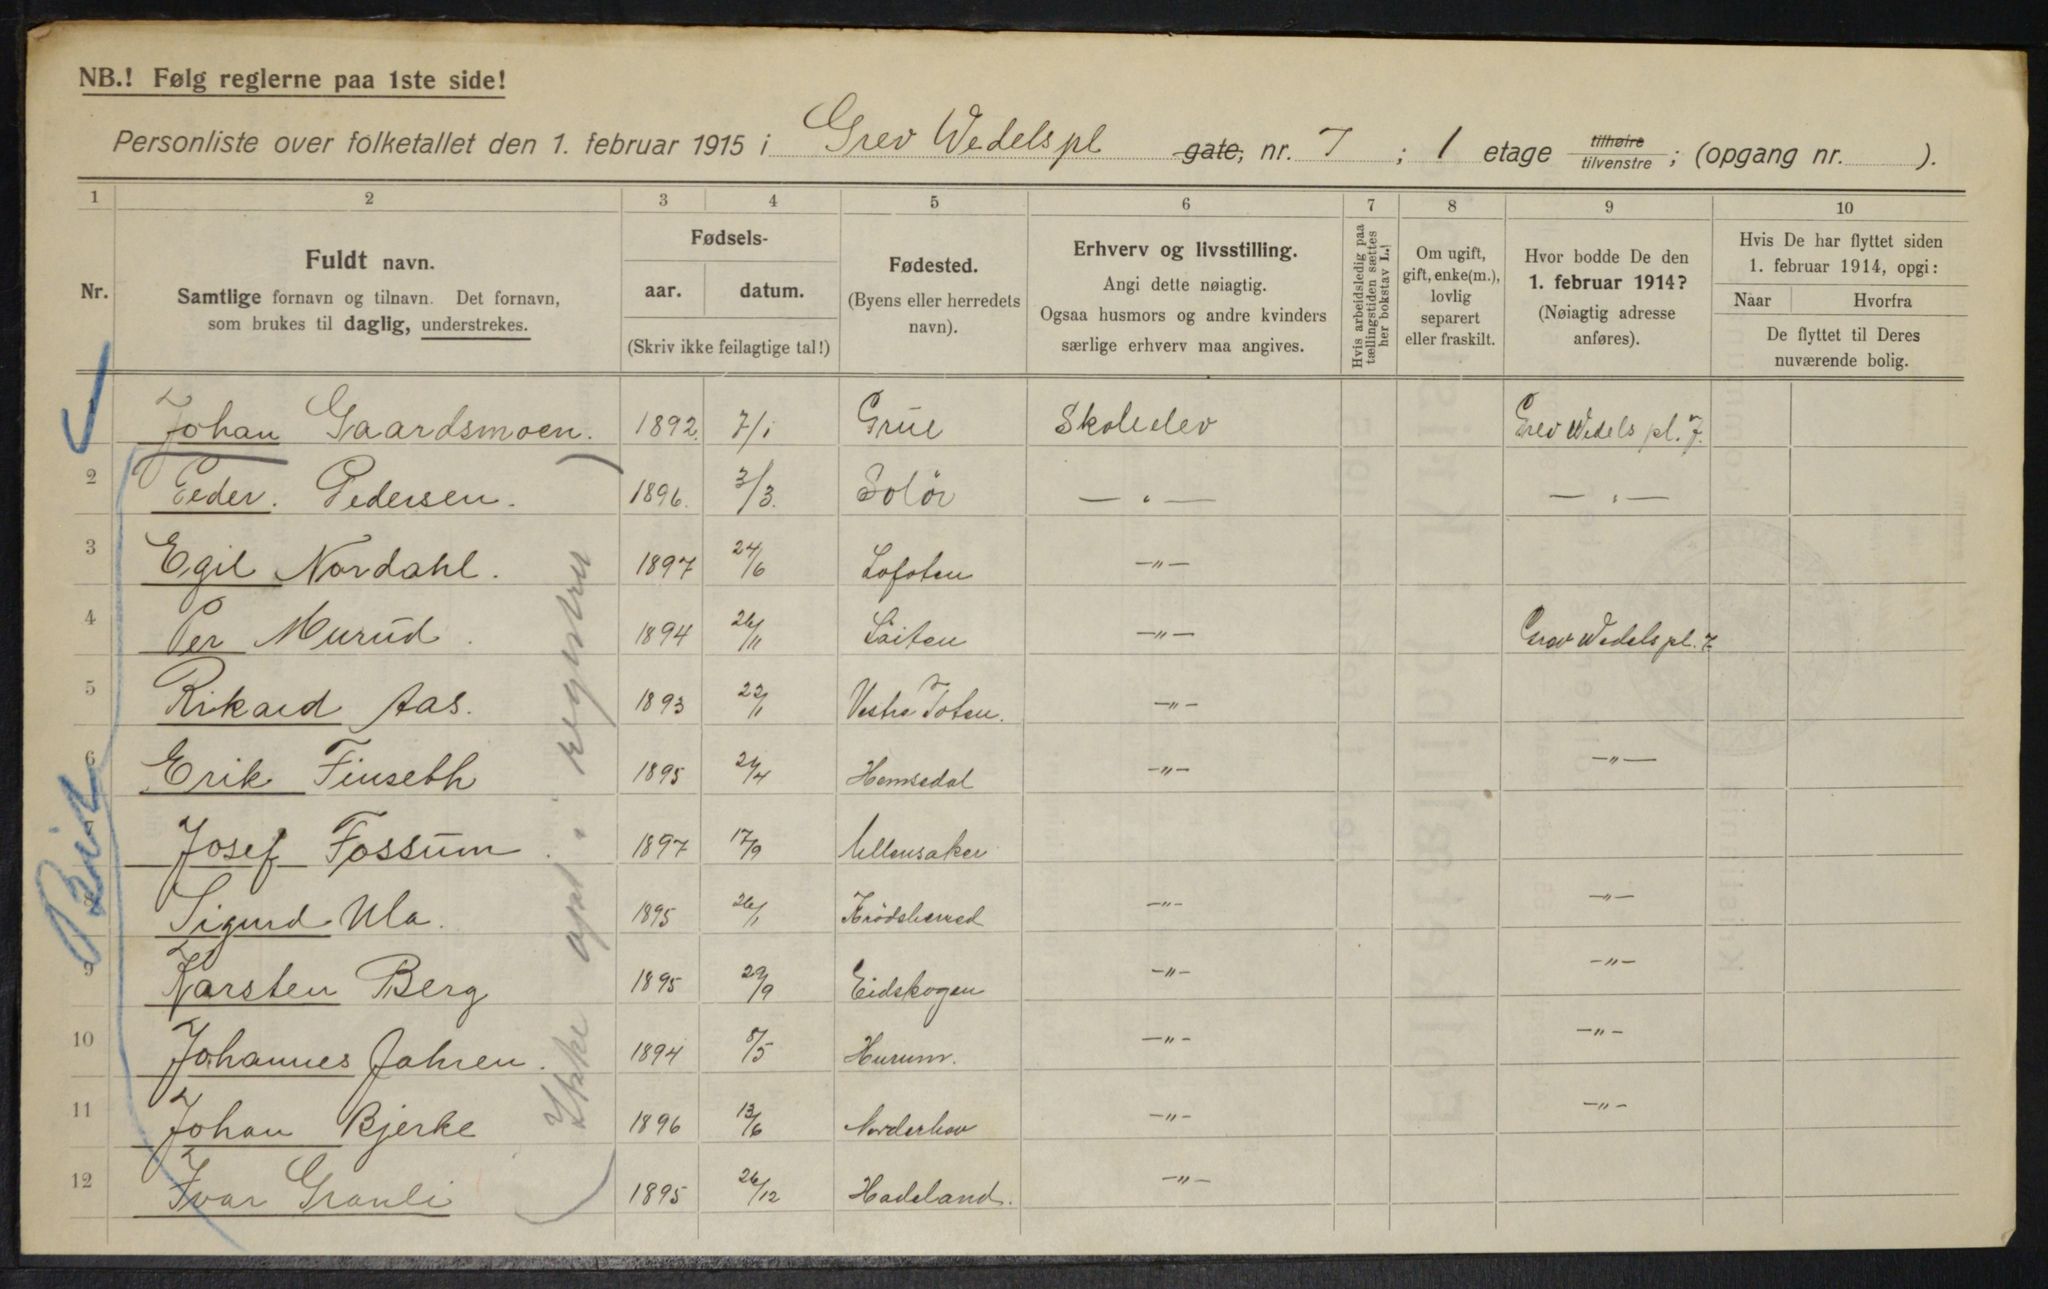 NB.! Følg reglerne paa 1ste side!
Personliste over folketallet den 1. februar 1915 i Grev Wedelspl gate, nr. 7 ; 1 etage tilhøire tilvenstre ; (opgang nr. ).
1 2 3 4 5 6 7 8 9 10
Nr.
Fuldt navn.
Samtlige fornavn og tilnavn. Det fornavn,
som brukes til daglig, understrekes.
Fødsels-
aar. datum.
(Skriv ikke feilagtige tal!)
Fødested.
(Byens eller herredets
navn).
Erhverv og livsstilling.
Angi dette nøiagtig.
Ogsaa husmors og andre kvinders
særlige erhverv maa angives.
Hvis arbeidsledig paa
tællingstiden sættes
her bokstav L.!
Om ugift,
gift, enke(m.),
lovlig
separert
eller fraskilt.
Hvor bodde De den
1. februar 1914?
(Nøiagtig adresse
anføres).
Hvis De har flyttet siden
1. februar 1914, opgi:
Naar Hvorfra
De flyttet til Deres
nuværende bolig.
Johan Gaardsmoen. 1892. 7/1 Grue Skoleelev Grev Wedels pl. 7.
2 Peder. Pedersen. 1896. 3/3. Solör — " — — " —
3 Egil Nordahl. 1897 24/6 Lofoten —"—
4 Per Murud. 1894 26/11 Löiten —"— Grev Wedelspl. 7
5 Rikard Aas. 1893 22/1 Vestre Toten. —"—
6 Erik Finseth 1895 24/4 Hemsedal —"— —"—
7 Josef Fossum. 1897 17/9 Ullensaker
8 Sigurd Ula. 1895 26/1 Krödsherred —"— —"—
9 Karsten Berg 1895 29/9 Eidskogen —"— —"—
10 Johannes Jahren. 1894 8/5 Hurum. —"— —"—
11 Johan Bjerke 1896 13/6 Norderhov —"— —"—
12 Ivar Granli 1895 26/12 Hadeland. —"—
Ikke opt. i registru